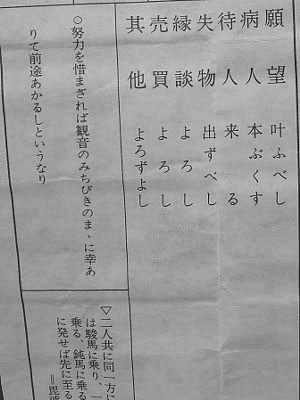 願望 叶ふべし
病人 本ぶくす
待人 来る
失物 出ずべし
縁談 よろし
売買 よろし
其他 よろずよし
○努力を惜まざれば観音のみちびきのまゝに幸あ
りて前途あかるしというなり
▽二人共に同一方に
は駿馬に乗り、一
乗る、鈍馬に乗る
に発せば先に至る